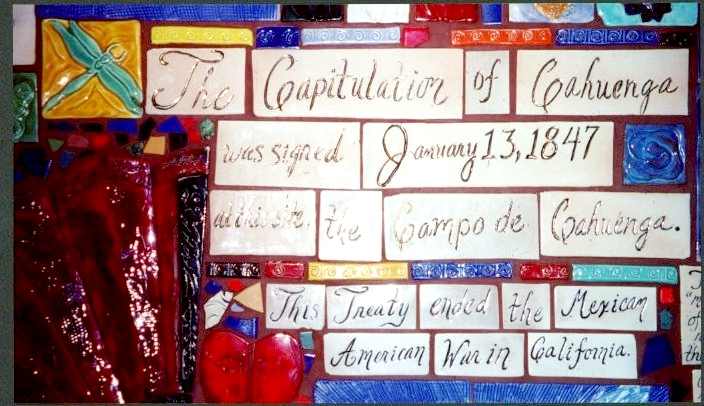 The Capitulation of Cahuenga
was signed January 13, 1847
at this site, the Campo de Cahuenga.
This Treaty ended the Mexican
American War in California.